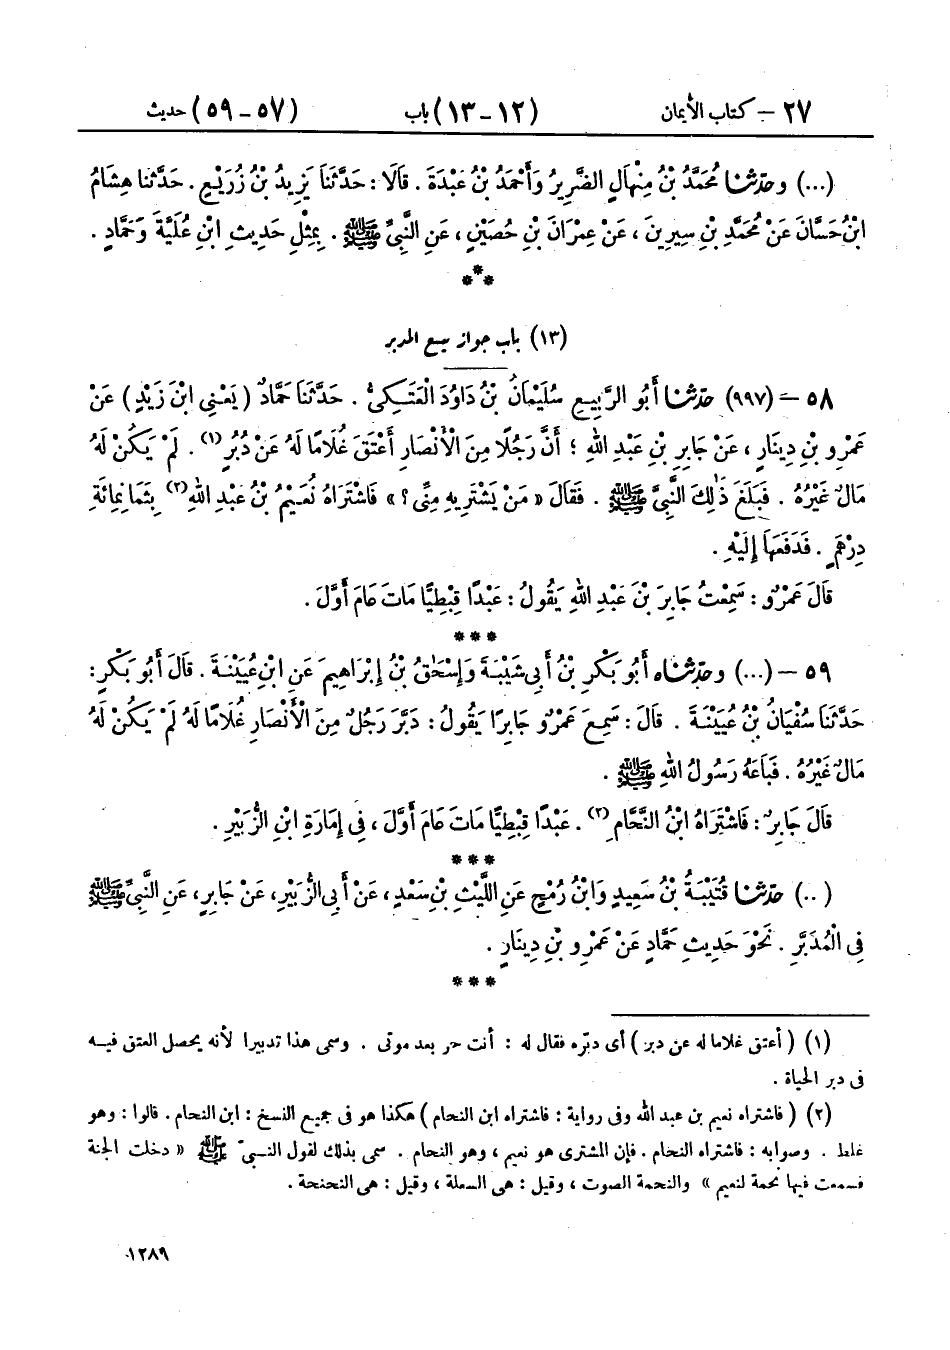 ٢٧ – كتاب الأيمان (١٢ – ١٣) باب (٥٧ – ٥٩) حديث
(...) وحَدَّثَنَا مُحَمَّدُ بْنُ مِنْهَالٍ الضَّرِيرُ وَأَحْمَدُ بْنُ عَبْدَةَ . قَالَا : حَدَّثَنَا يَزِيدُ بْنُ زُرَيْعٍ . حَدَّثَنَا هِشَامُ
ابْنُ حَسَّانَ عَنْ مُحَمَّدِ بْنِ سِيرِينَ ، عَنْ عِمْرَانَ بْنِ حُصَيْنٍ ، عَنِ النَّبِيِّ ﷺ . بِمِثْلِ حَدِيثِ ابْنِ عُلَيَّةَ وَحَمَّادٍ .
***
(١٣) باب جواز بيع المدبر
٥٨ – (٩٩٧) حَدَّثَنَا أَبُو الرَّبِيعِ سُلَيْمَانُ بْنُ دَاوُدَ الْعَتَكِيُّ . حَدَّثَنَا حَمَّادٌ ( يَعْنِي ابْنَ زَيْدٍ ) عَنْ
عَمْرِو بْنِ دِينَارٍ ، عَنْ جَابِرِ بْنِ عَبْدِ اللهِ ؛ أَنَّ رَجُلًا مِنَ الْأَنْصَارِ أَعْتَقَ غُلَامًا لَهُ عَنْ دُبُرٍ (١) . لَمْ يَكُنْ لَهُ
مَالٌ غَيْرُهُ . فَبَلَغَ ذَٰلِكَ النَّبِيَّ ﷺ . فَقَالَ « مَنْ يَشْتَرِيهِ مِنِّي ؟ » فَاشْتَرَاهُ نُعَيْمُ بْنُ عَبْدِ اللهِ (٢) بِثَمَانِمِائَةِ
دِرْهَمٍ . فَدَفَعَهَا إِلَيْهِ .
قَالَ عَمْرٌو : سَمِعْتُ جَابِرَ بْنَ عَبْدِ اللهِ يَقُولُ : عَبْدًا قِبْطِيًّا مَاتَ عَامَ أَوَّلَ .
***
٥٩ – (...) وحَدَّثَنَاه أَبُو بَكْرِ بْنُ أَبِي شَيْبَةَ وَإِسْحَاقُ بْنُ إِبْرَاهِيمَ عَنِ ابْنِ عُيَيْنَةَ . قَالَ أَبُو بَكْرٍ :
حَدَّثَنَا سُفْيَانُ بْنُ عُيَيْنَةَ . قَالَ : سَمِعَ عَمْرٌو جَابِرًا يَقُولُ : دَبَّرَ رَجُلٌ مِنَ الْأَنْصَارِ غُلَامًا لَهُ لَمْ يَكُنْ لَهُ
مَالٌ غَيْرُهُ . فَبَاعَهُ رَسُولُ اللهِ ﷺ .
قَالَ جَابِرٌ : فَاشْتَرَاهُ ابْنُ النَّحَّامِ (٢) . عَبْدًا قِبْطِيًّا مَاتَ عَامَ أَوَّلَ ، فِي إِمَارَةِ ابْنِ الزُّبَيْرِ .
***
(..) حَدَّثَنَا قُتَيْبَةُ بْنُ سَعِيدٍ وَابْنُ رُمْحٍ عَنِ اللَّيْثِ بْنِ سَعْدٍ ، عَنْ أَبِي الزُّبَيْرِ ، عَنْ جَابِرٍ ، عَنِ النَّبِيِّ ﷺ
فِي الْمُدَبَّرِ . نَحْوَ حَدِيثِ حَمَّادٍ عَنْ عَمْرِو بْنِ دِينَارٍ .
***
(١) ( أعتق غلاما له عن دبر ) أى دبّره فقال له : أنت حر بعد موتى . وسمى هذا تدبيرا لأنه يحصل العتق فيه
فى دبر الحياة .
(٢) ( فاشتراه نعيم بن عبد الله وفى رواية : فاشتراه ابن النحام ) هكذا هو فى جميع النسخ : ابن النحام . قالوا : وهو
غلط . وصوابه : فاشتراه النحام . فإن المشترى هو نعيم ، وهو النحام . سمى بذلك لقول النبىّ ﷺ « دخلت الجنة
فسمعت فيها نحمة لنعيم » والنحمة الصوت ، وقيل : هى السعلة ، وقيل : هى النحنحة .
١٢٨٩